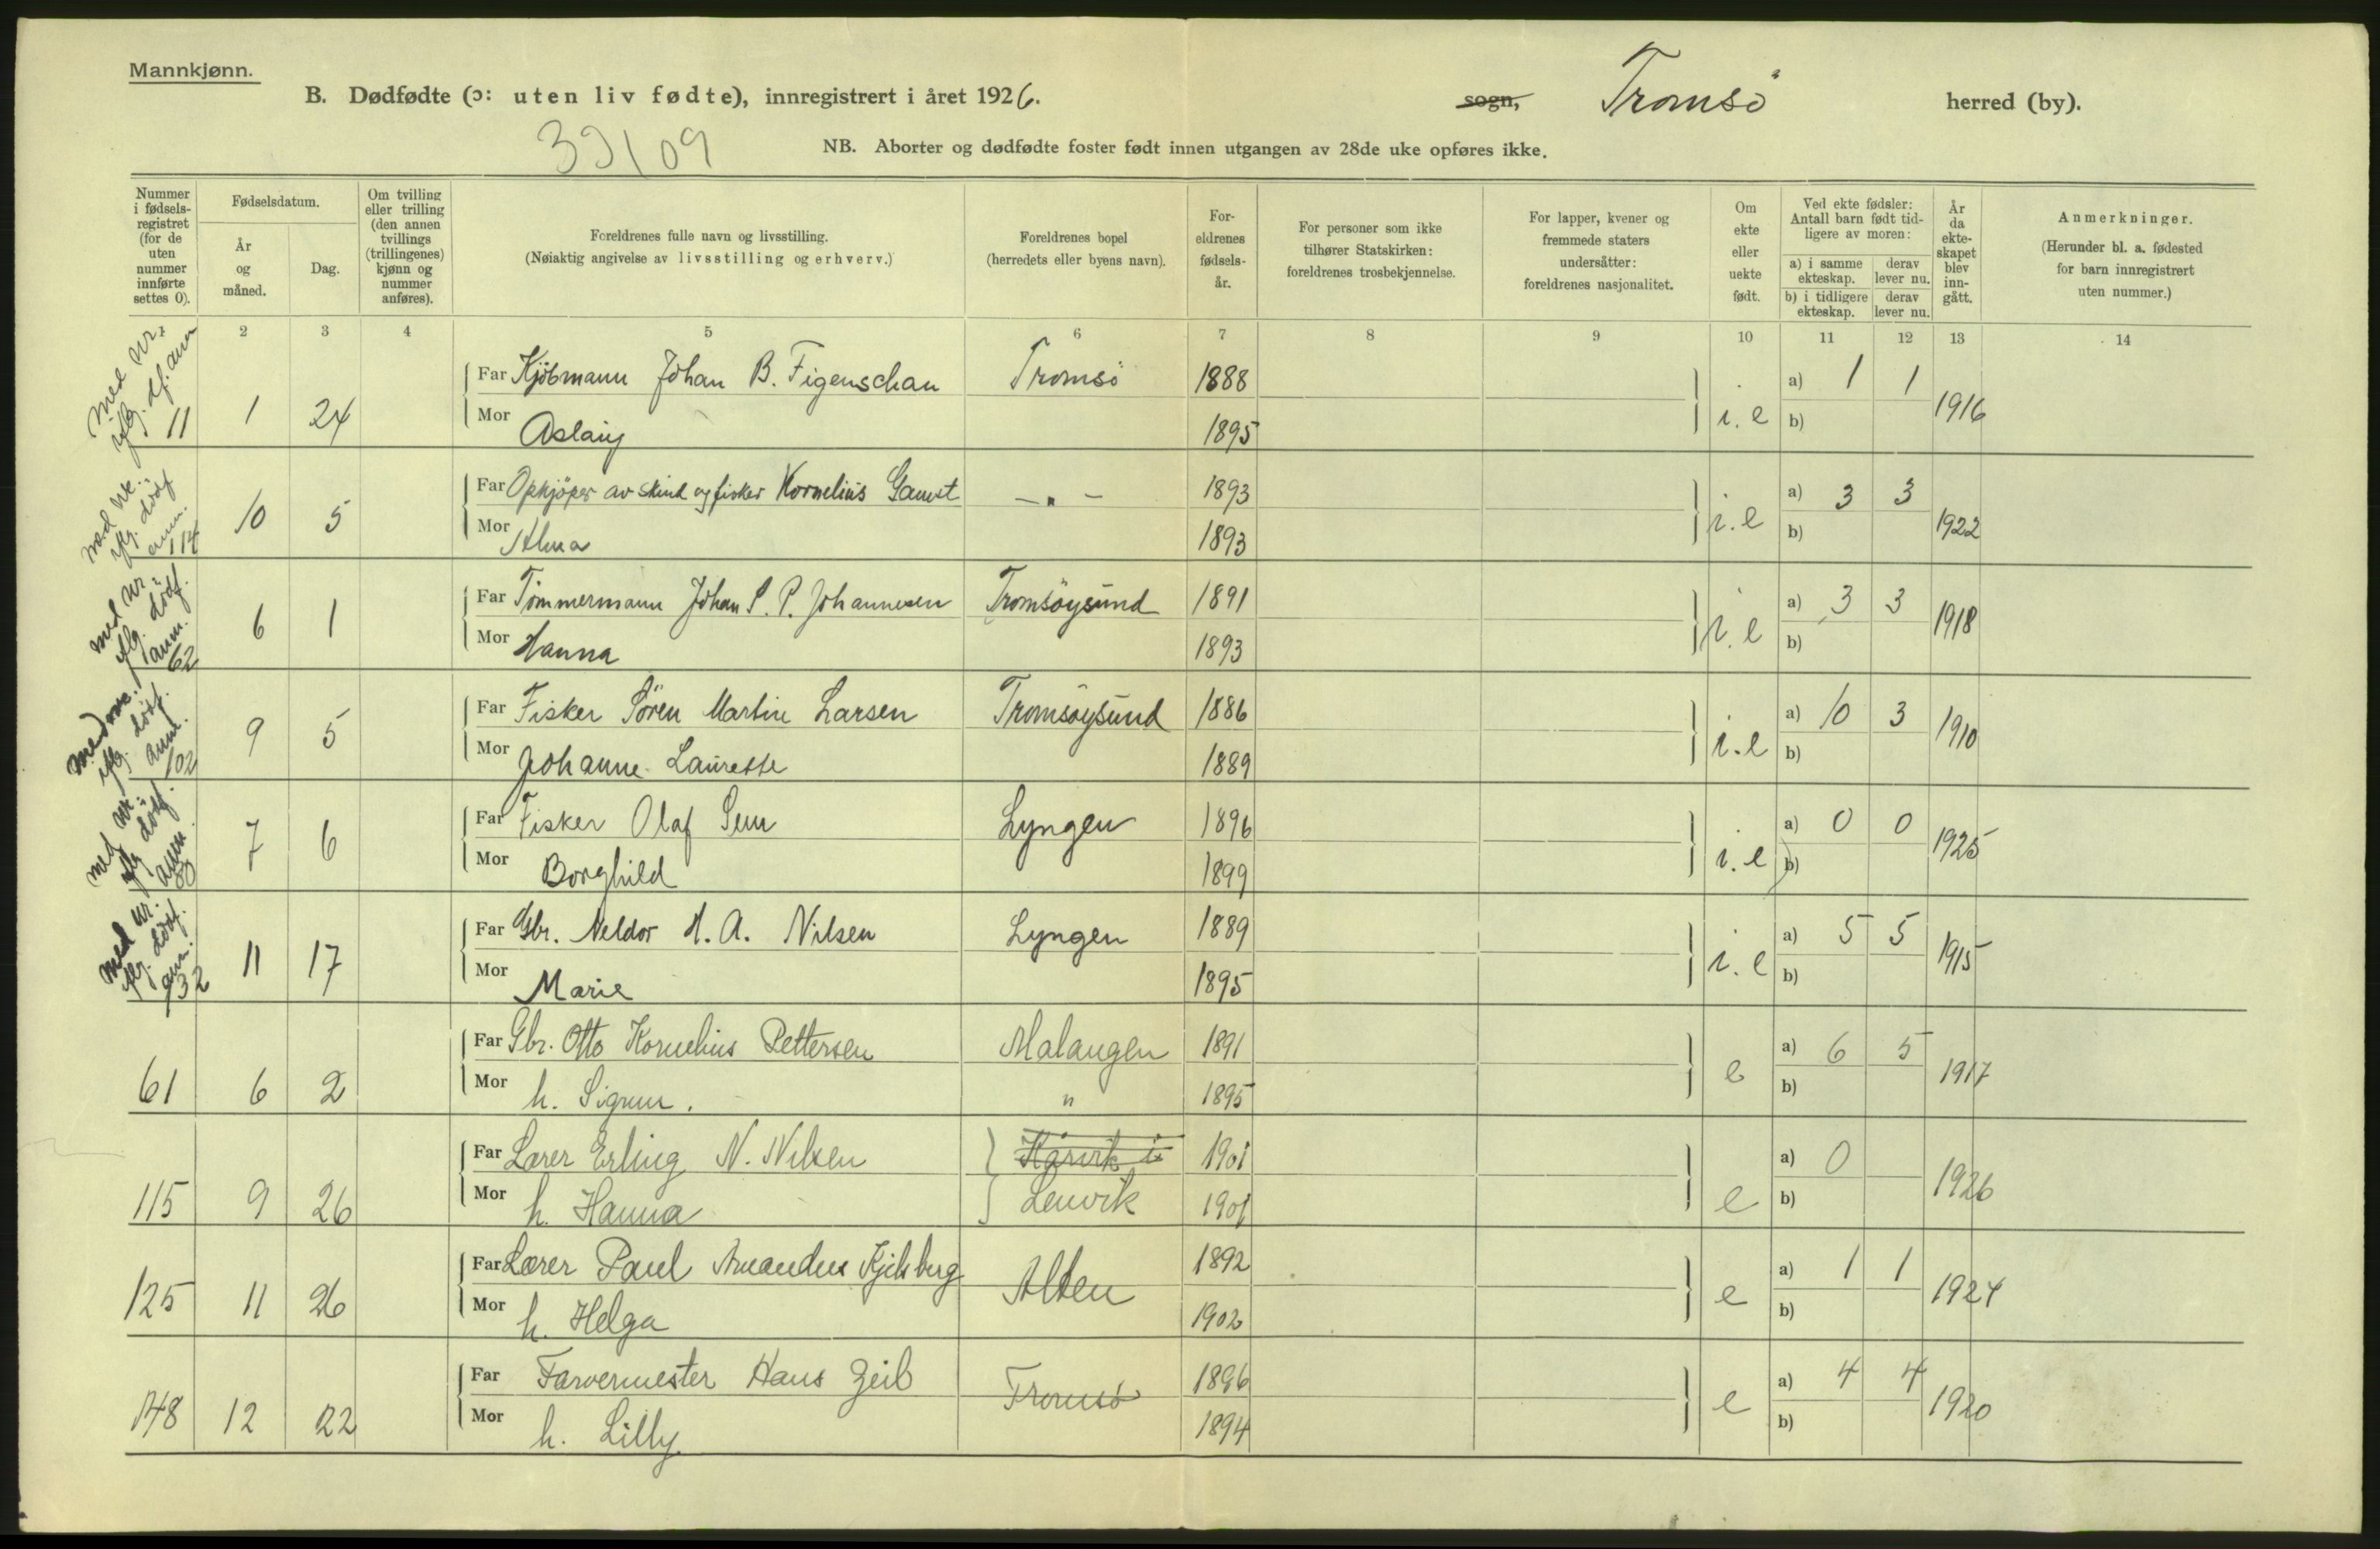 Mannkjønn.
B. Dødfødte (ɔ: uten liv fødte), innregistrert i året 1926. sogn, Tromsö herred (by).
39109
NB. Aborter og dødfødte foster født innen utgangen av 28de uke opføres ikke.
Nummer i fødsels-registret (for de uten nummer innførte settes 0).
Fødselsdatum.
År og måned.
Dag.
Om tvilling eller trilling (den annen tvillings (trillingenes) kjønn og nummer anføres).
Foreldrenes fulle navn og livsstilling.
(Nøiaktig angivelse av livsstilling og erhverv.)
Foreldrenes bopel
(herredets eller byens navn).
For-eldrenes fødsels-år.
For personer som ikke tilhører Statskirken: foreldrenes trosbekjennelse.
For lapper, kvener og fremmede staters undersåtter: foreldrenes nasjonalitet.
Om ekte eller uekte født.
Ved ekte fødsler: Antall barn født tid-ligere av moren:
a) i samme ekteskap. derav lever nu.
b) i tidligere ekteskap. derav lever nu.
År da ekte-skapet blev inn-gått.
Anmerkninger.
(Herunder bl. a. fødested for barn innregistrert uten nummer.)
1 2 3 4 5 6 7 8 9 10 11 12 13 14
med nr. iflg. df. anm
Far Kjöbmann Johan B. Figenschau Tromsö 1888 a) 1 1
11 1 24 Mor Aslaug 1895 i. e b) 1916
med nr. iflg. dödf anm.
Far Opkjöper av skind og fisker Kornelius Gamst — " — 1893 a) 3 3
114 10 5 Mor Alma 1893 i. e b) 1922
med nr. iflg. dödf. anm.
Far Tömmermann Johan S. P. Johannesen Tromsöysund 1891 a) 3 3
62 6 1 Mor Hanna 1893 i. e b) 1918
med nr. iflg. dödf. anm.
Far Fisker Sören Martin Larsen Tromsöysund 1886 a) 10 3
102 9 5 Mor Johanne Laurette 1889 i. e b) 1910
med nr. iflg dödf. anm
Far Fisker Olaf Lyngen 1896 a) 0 0
80 7 6 Mor Borghild 1899 i. e b) 1925
med nr. iflg. dödf. anm.
Far Gbr. Neldor H. A. Nilsen Lyngen 1889 a) 5 5
132 11 17 Mor Marie 1895 i. e b) 1915
Far Gbr. Otto Kornelius Pettersen Malangen 1891 a) 6 5
61 6 2 Mor h. Sigrun. " 1895 e b) 1917
Far Lærer Erling N. Nilsen Kårvik i 1901 a) 0
115 9 26 Mor h. Hanna Lenvik 1901 e b) 1926
Far Lærer Paul Amandus Kjelsberg Alten 1892 a) 1 1
125 11 26 Mor h. Helga 1902 e b) 1924
Far Farvermester Hans Zeib Tromsö 1896 a) 4 4
148 12 22 Mor h. Lilly 1894 e b) 1920